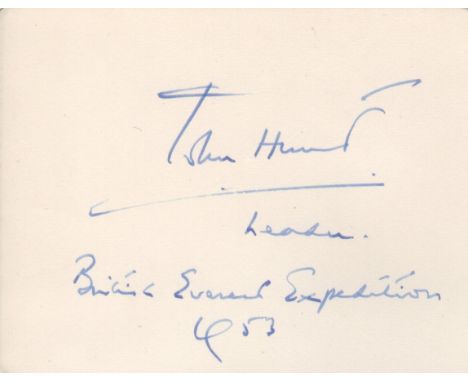 John Hunt
Leader.
British Everest Expedition
1953